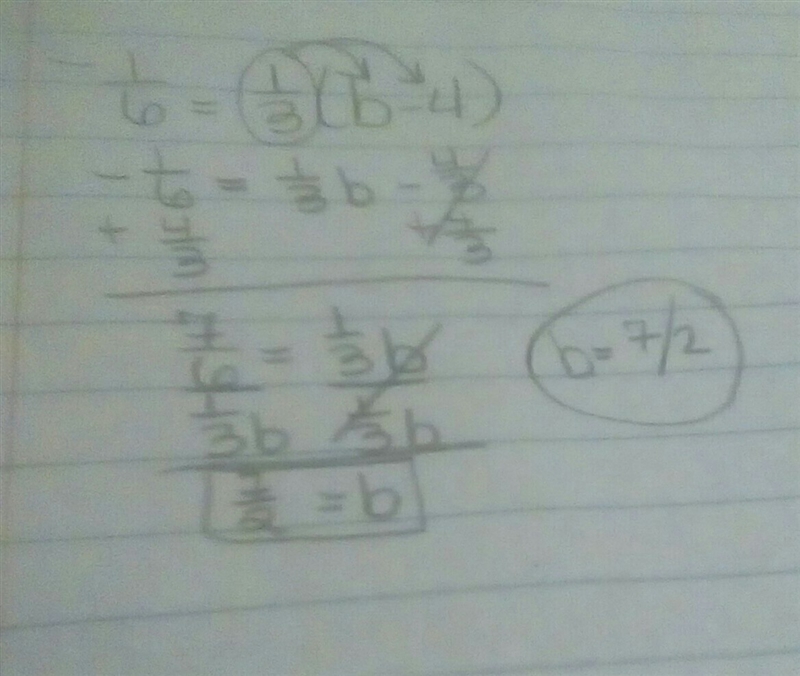 - 1/6 = 1/3 (b - 4)
- 1/6 = 1/3 b - 4/3
+ 4/3 + 4/3
7/6 = 1/3 b
1/3 b 1/3 b
7/2 = b
b = 7/2